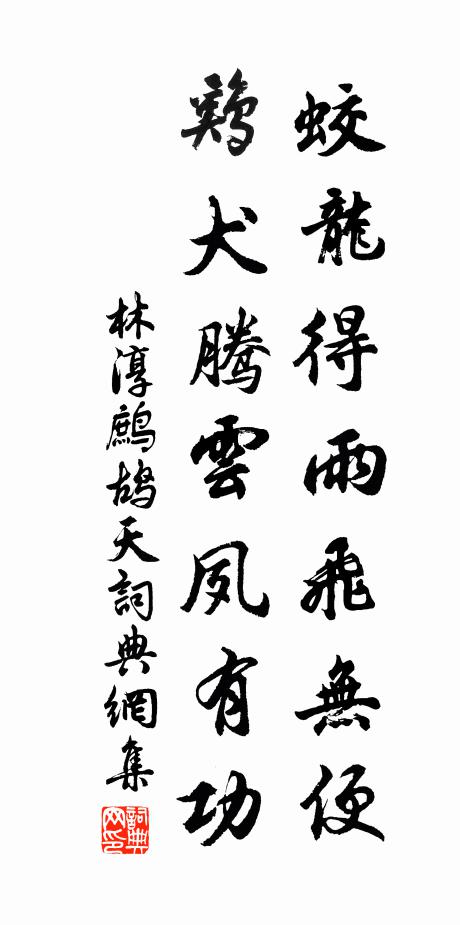 蛟龍得雨飛無便
鷄犬騰雲夙有功
林淳鷓鴣天詞典網集
詞典網印